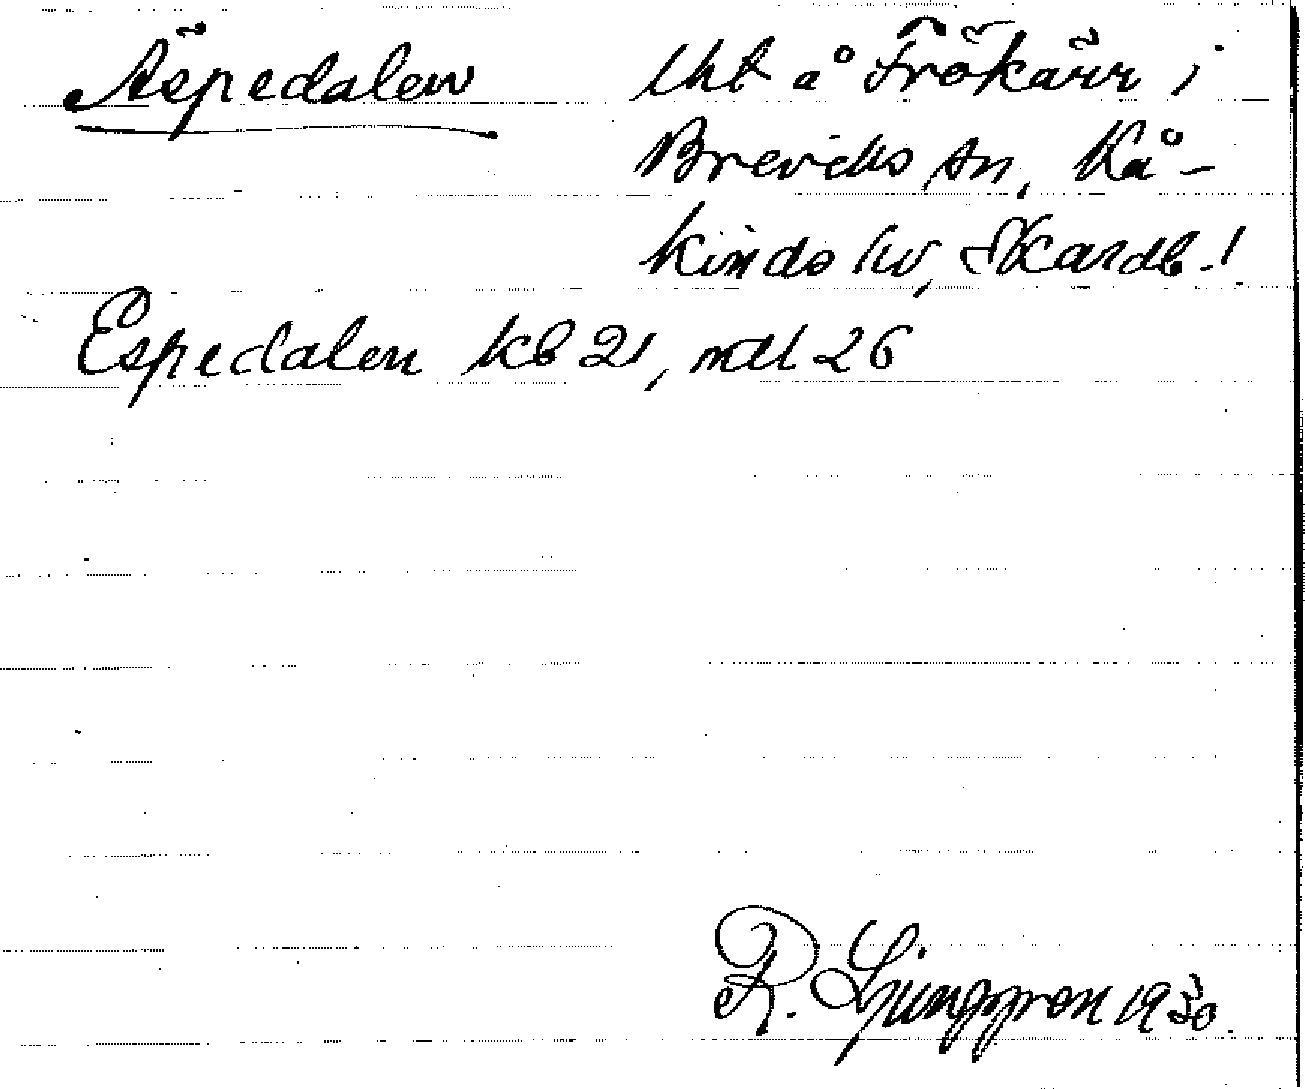 Äspedalen lht å Frökärr i
Breviks sn, Kå-
kinds hd, Skarab.l
Espedalen kb 21, mtl 26
R. Ljunggren 1930.